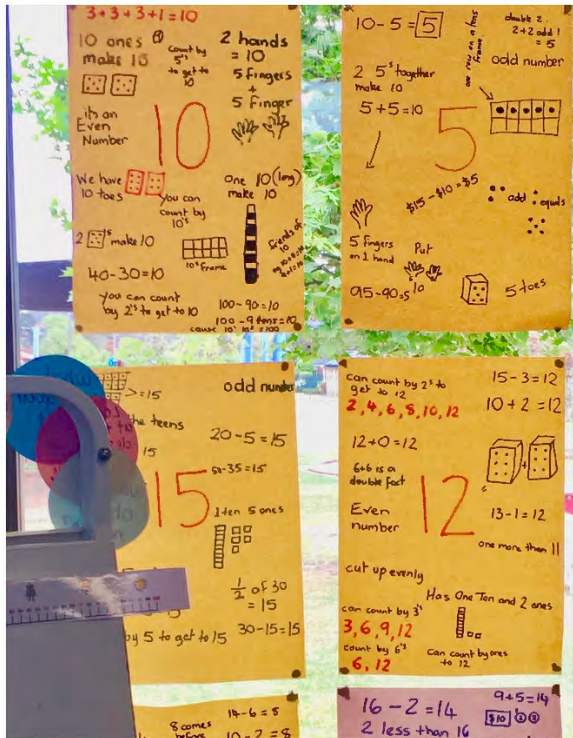 3+3+3+1=10
10 ones
make 10
count by
5's
to get to
10
2 hands
= 10
5 fingers
+
5 Finger
its an
Even
Number
10
We have
10 toes
you can
count by
10's
one 10 (long)
make 10
2 's make 10
10's frame
friends of
10
40-30=10
you can count
by 2's to get to 10
100-90=10
100-9 tens=10
cause 10' 10' = 100
10-5=5
double 2.
2+2 add 1
= 5
one row on a tens
frame
odd number
2 5's together
make 10
5+5=10
5
$15-$10=$5
add
equals
5 fingers
on 1 hand
Put
10
95-90=5
5 toes
>=15
odd number
the teens
15
20-5=15
50-35=15
15
1 ten 5 ones
1/2 of 30
= 15
by 5 to get to 15
30-15=15
can count by 2's to
get to 12
2,4,6,8,10,12
15-3=12
10+2=12
12+0=12
6+6 is a
double fact
+
=
Even
number
12
13-1=12
one more than 11
cut up evenly
Has One Ten and 2 ones
can count by 3's
3,6,9,12
count by 6's
6,12
Can count by ones
to 12
14-6=8
8 comes
before
10-2=8
16-2=14
2 less than 16
9+5=14
$10